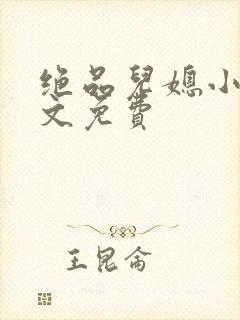 绝品兒媳小
文免费
王昆侖